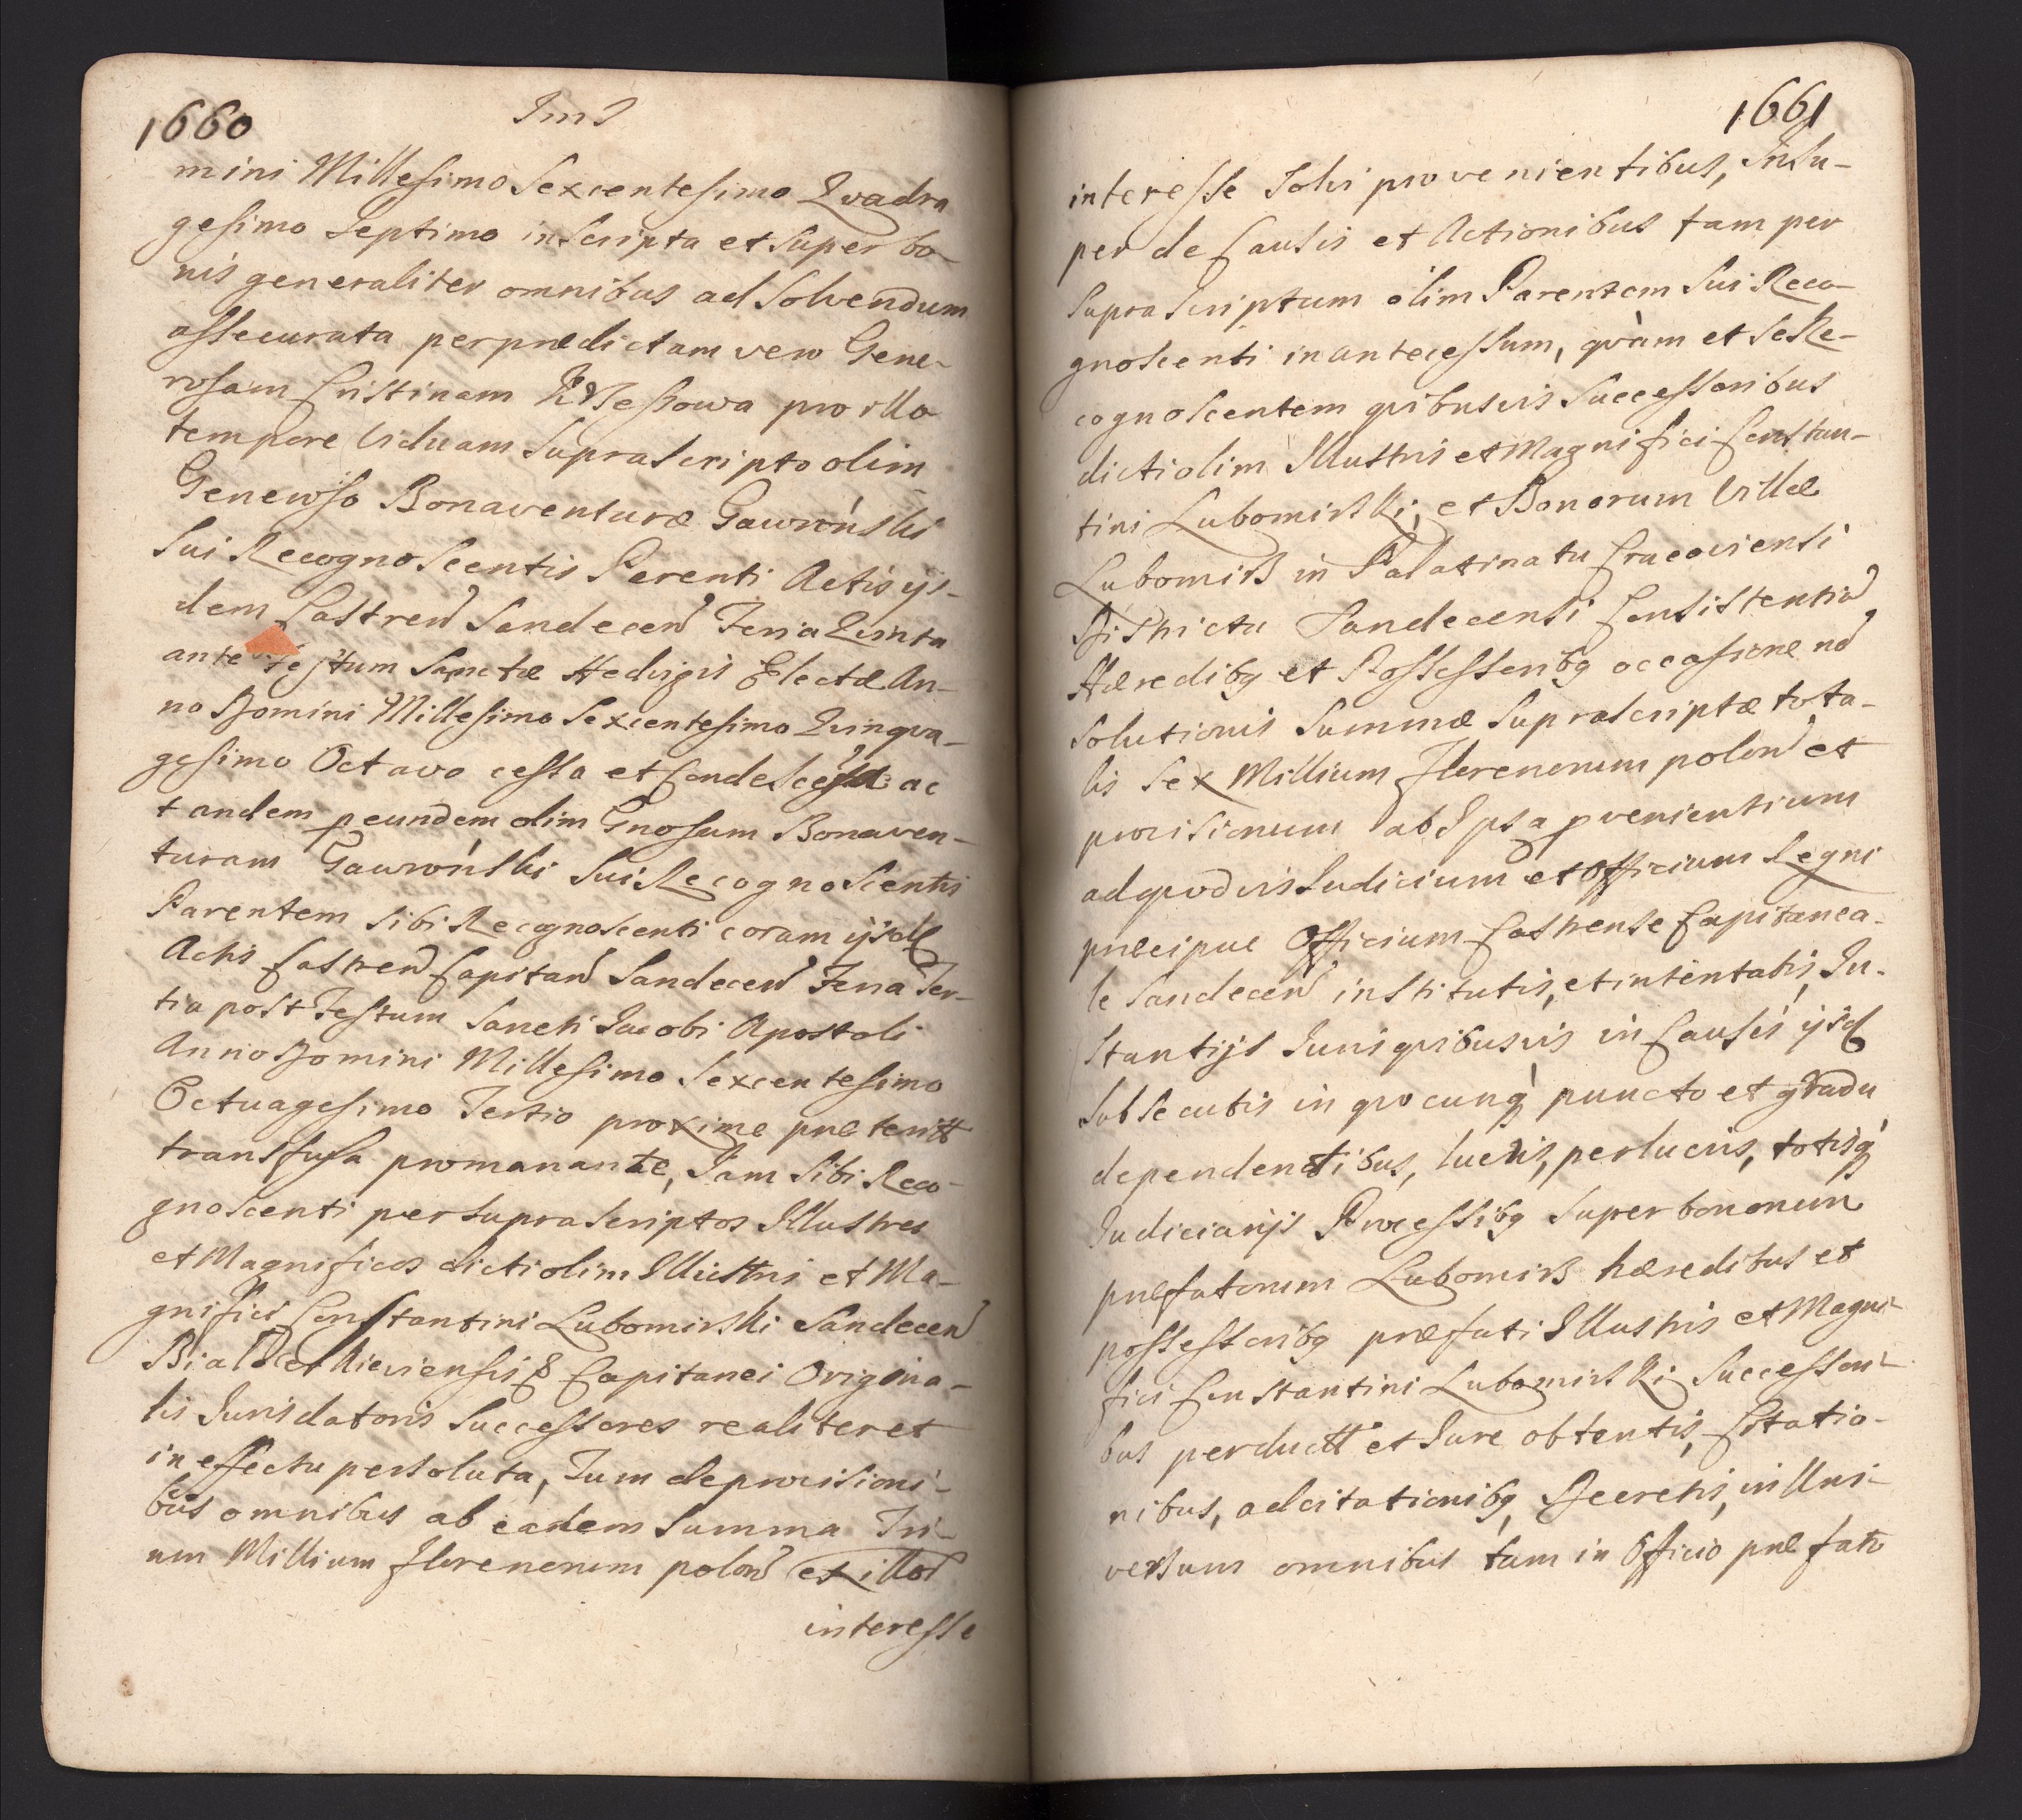 1660
mini Millesimo Sexcentesimo Qvadra
gesimo Septimo inscripta et super bo-
nis generaliter omnibus ad solvendum
assecurata per prædictam vero Gene-
rosam Cristinam pro illo
tempore Viduam suprascripto olim
Generoso Bonaventuræ Gawroński
sui Recognoscentis Perenti Actis ijs-
dem Castren Sandecen Feria Qvinta
ante festum Sanctæ Hedvigis Electæ An-
no Domini Millesimo Sexcentesimo Qvinqva-
gesimo Octavo cessa et condescensa ac
tandem p eundem olim Gnosum Bonaven-
turam Gawroński sui Recognoscentis
Parentem sibi Recognoscenti coram ijsd
Actis Castren Capitan Sandecen Feria Ter-
tia post Festum Sancti Jacobi Apostoli
Anno Domini Millesimo Sexcentesimo
Octuagesimo Tertio proxime præterit
transfusa promanante, Jam sibi Reco-
gnoscenti per suprascriptos Illustres
et Magnificos dicti olim Illustris et Ma-
gnifici Constantini Lubomirski Sandecen
Bialocerkieviensis & Capitanei Origina-
lis Juris datoris Successores realiter et
in effectu persoluta, Tum de provisioni-
bus omnibus ab eadem Summa Tri-
um Millium florenorum polon et illor
interesse
1661
interesse solvi provenientibus, Insu-
per de Causis et Actionibus tam per
suprascriptum olim Parentem sui Reco-
gnoscenti in antecessum, qvàm et se Re-
cognoscentem qvibusvis Successoribus
dicti olim Illustris et Magnifici Constan-
tini Lubomirski, et Bonorum Villæ
Lubomirz in Palatinatu Cracoviensi
Districtu Sandecensi Consistentium
Hæredibq et Possessoribq occasione no
solutionis Summæ suprascriptæ tota-
lis Sex Millium Florenorum polon et
provisionum ab Ipsa pvenientium
ad qvodvis Judicium et Officium Regni
præcipue Officium Castrense Capitanea-
le Sandecen institutis, et intentatis, In-
stantijs Juris qvibusvis in Causis ijsd
subsecutis in qvocunq puncto et gradu
dependentibus, lucris, perlucris, totisq
Judiciarijs Processibq super bonorum
præfatorum Lubomirz hæredibus et
possessoribq præfati Illustris et Magni-
fici Constantini Lubomirski Successori-
bus perductt et Jure obtentis, Citatio-
nibus, adcitationibq, Decretis, in Uni-
versum omnibus tam in Officio præfato